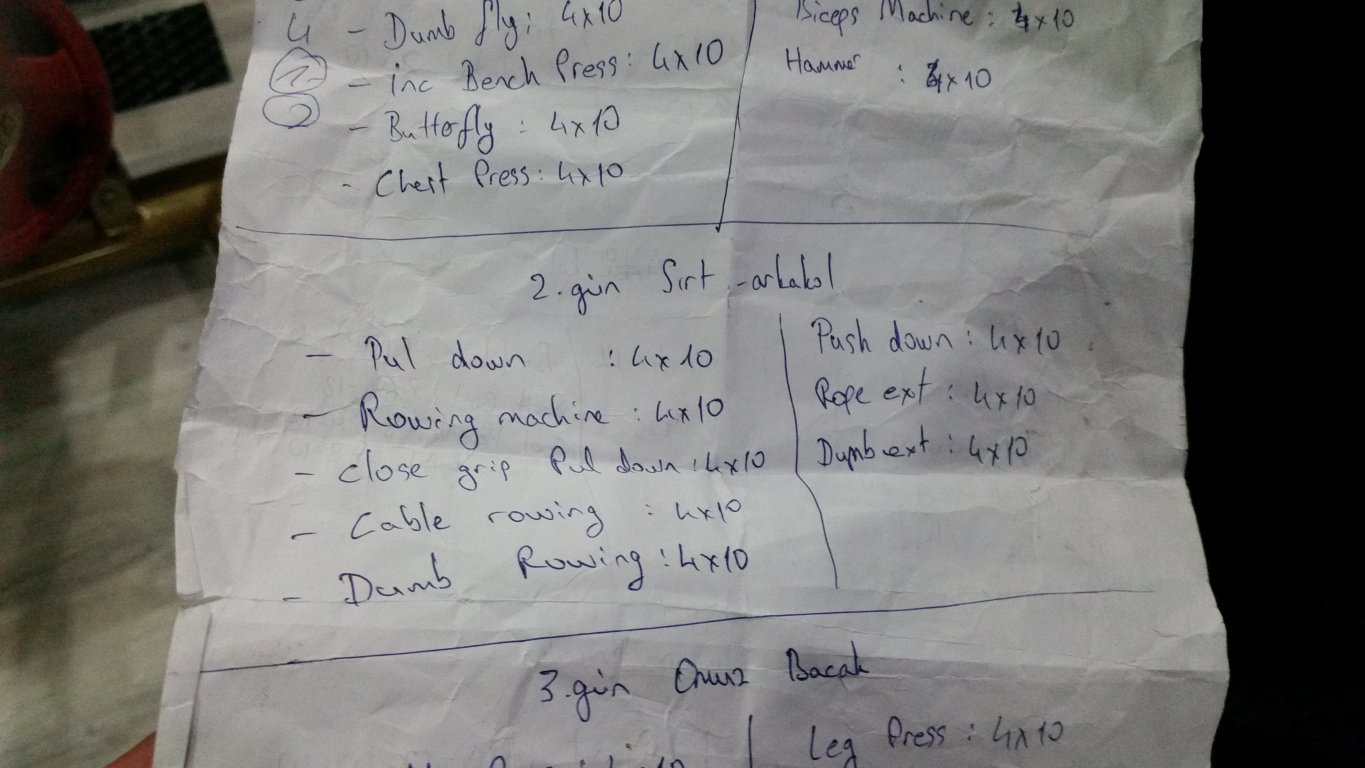 4 - Dumb fly: 4x10
1 - inc Bench Press: 4x10
2 - Butterfly: 4x10
- Chest Press: 4x10
Biceps Machine: 4x10
Hammer: 4x10
2.gün Sırt-arkakol
- Pul down: 4x10
- Rowing machine: 4x10
- close grip Pul down: 4x10
- Cable rowing: 4x10
- Dumb Rowing: 4x10
Push down: 4x10
Rope ext: 4x10
Dumb ext: 4x10
3.gün Omuz Bacak
Leg Press: 4x10